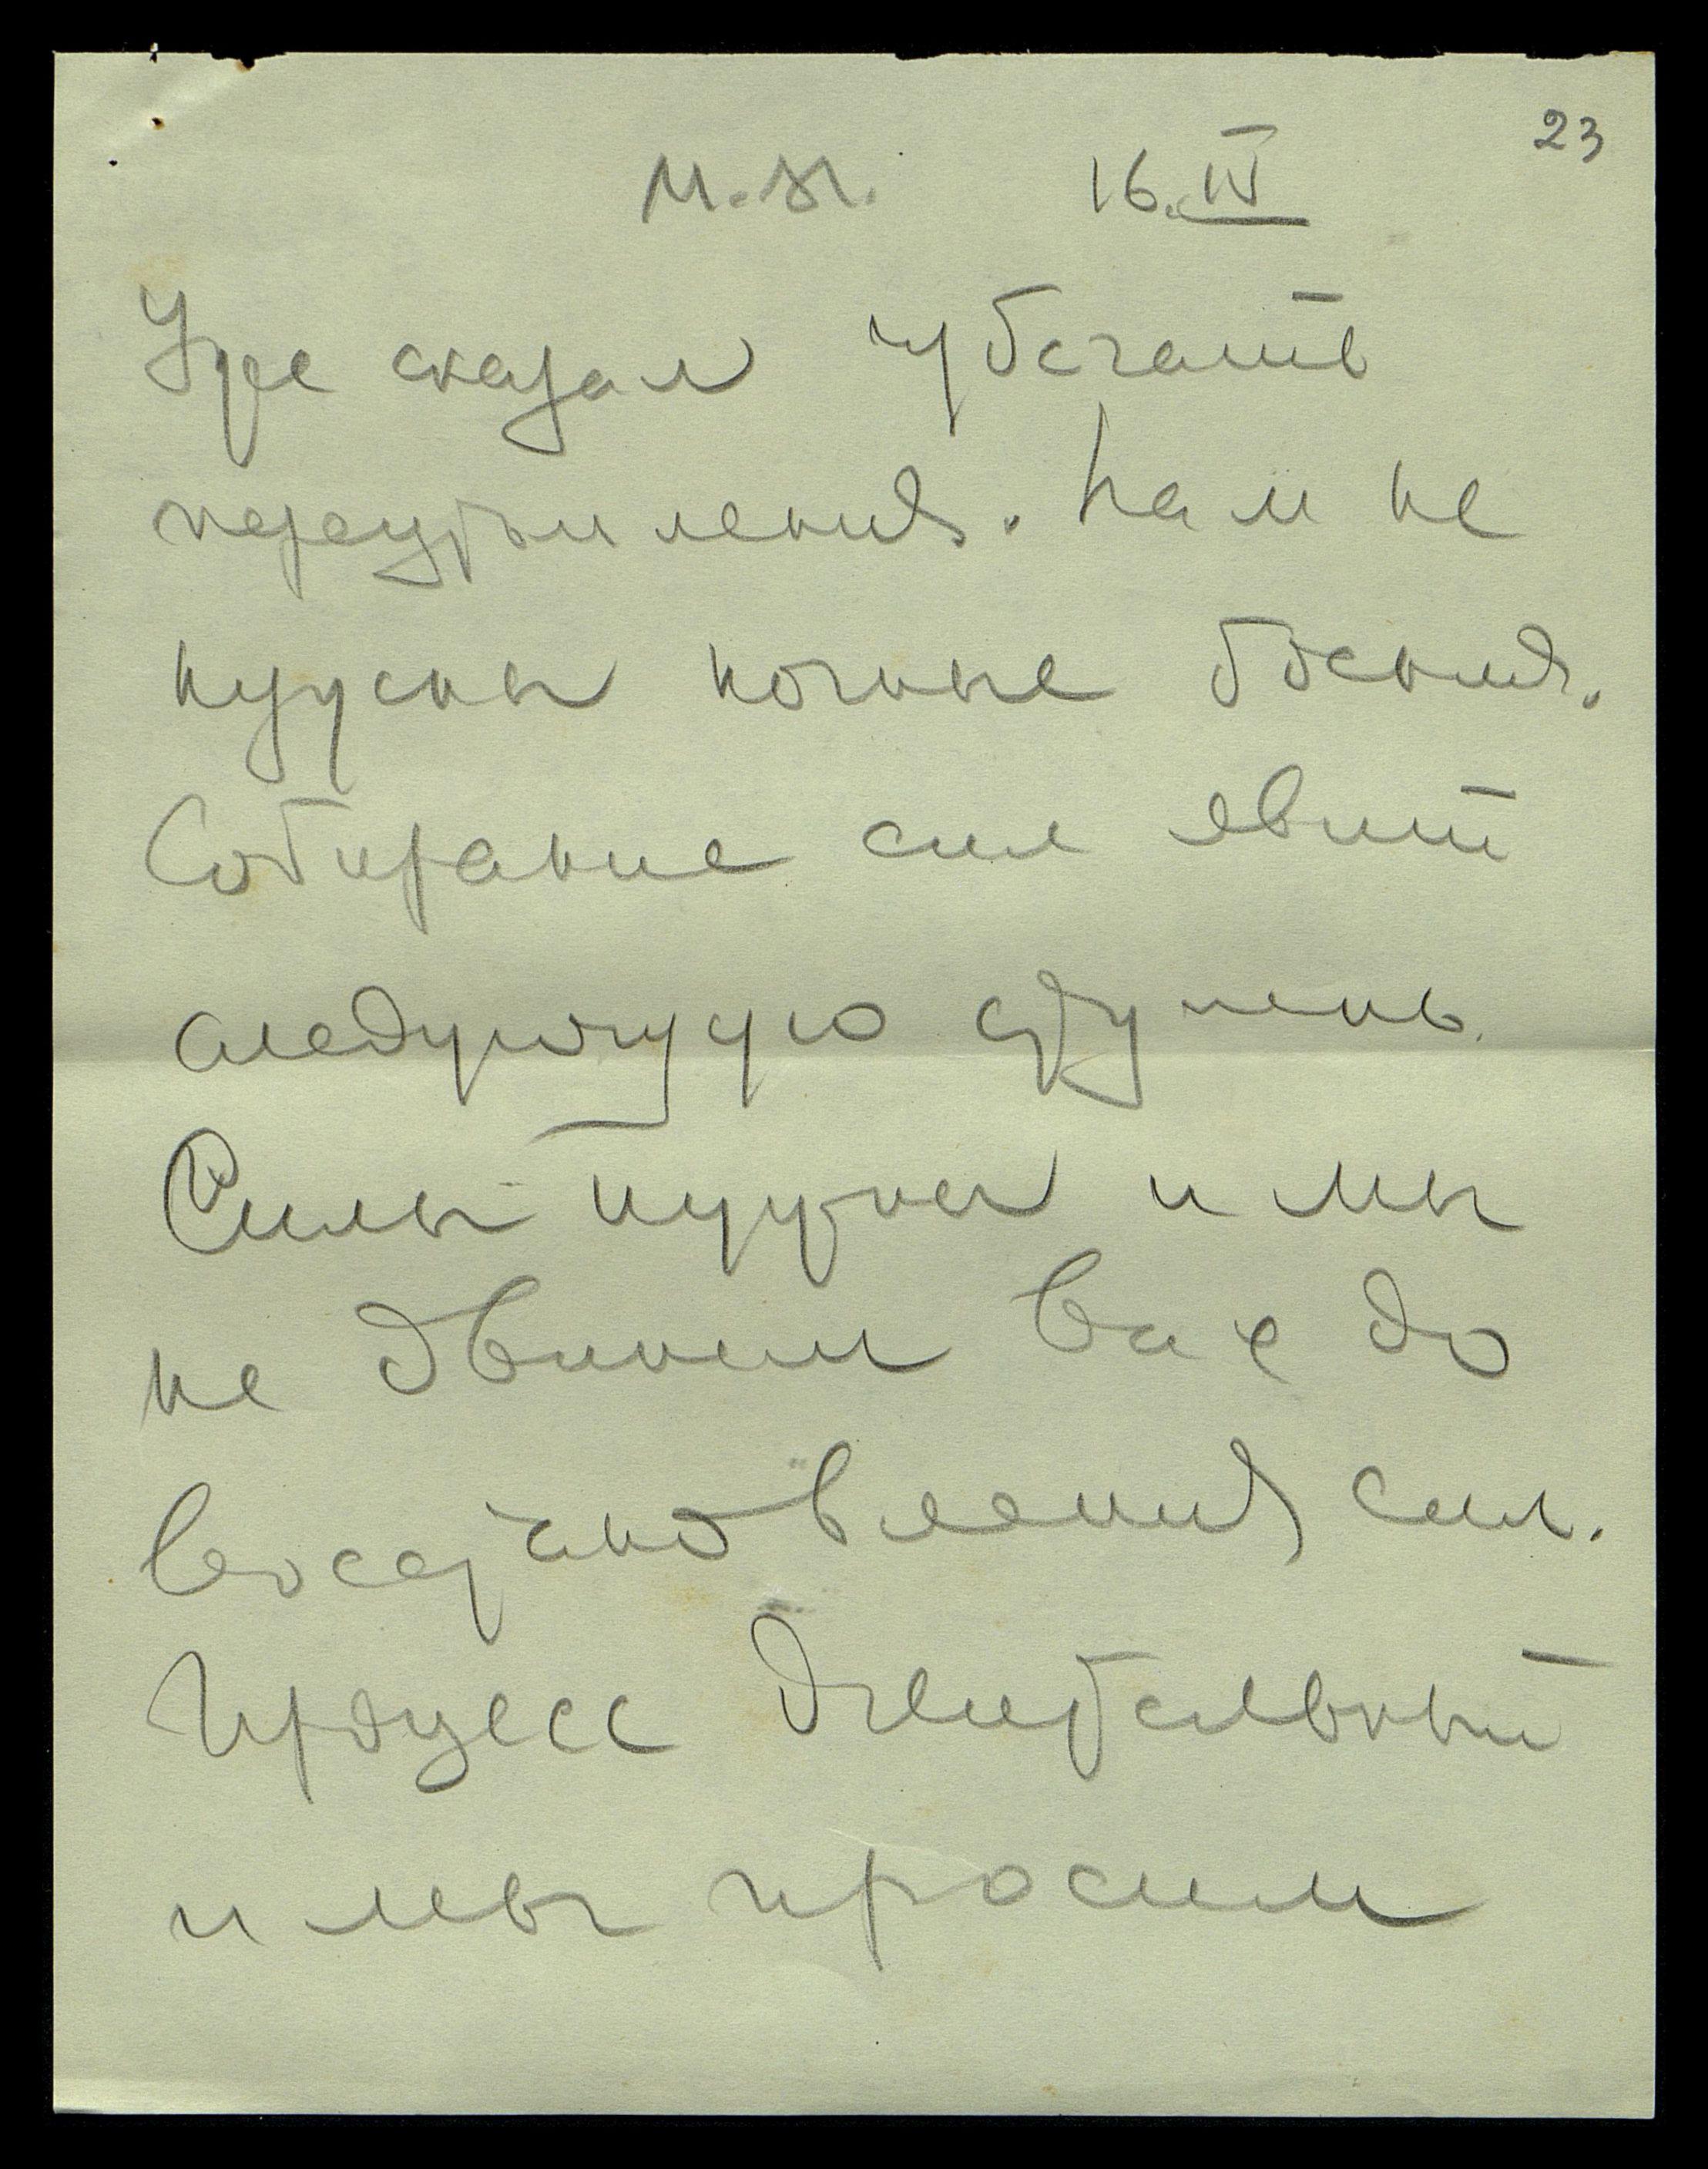 23
М.М. 16.IV
Уже сказал избегать
переутомления. Нам не
нужны ночные бдения.
Собирание сил явит
следующую ступень.
Силы нужны и мы
не двинем вас до
восстановления сил.
Процесс длительный
и мы просим